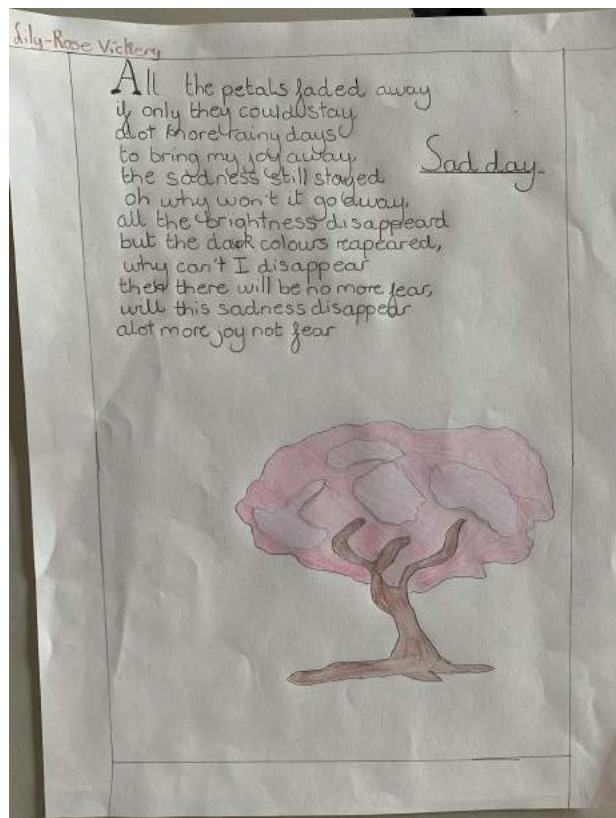 Lily-Rose Vickery
All the petals faded away
if only they could stay,
alot more rainy days
to bring my joy away,
Sad day.
the sadness still stayed
oh why won't it go away,
all the brightness disappeard
but the dark colours reapeared,
why can't I disappear
then there will be no more fear,
will this sadness disappear
alot more joy not fear